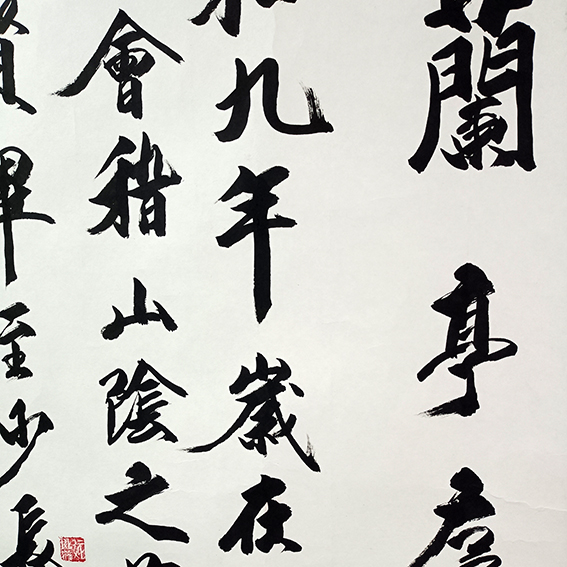 蘭亭序
和九年歲在
會稽山陰之
賢畢至少長